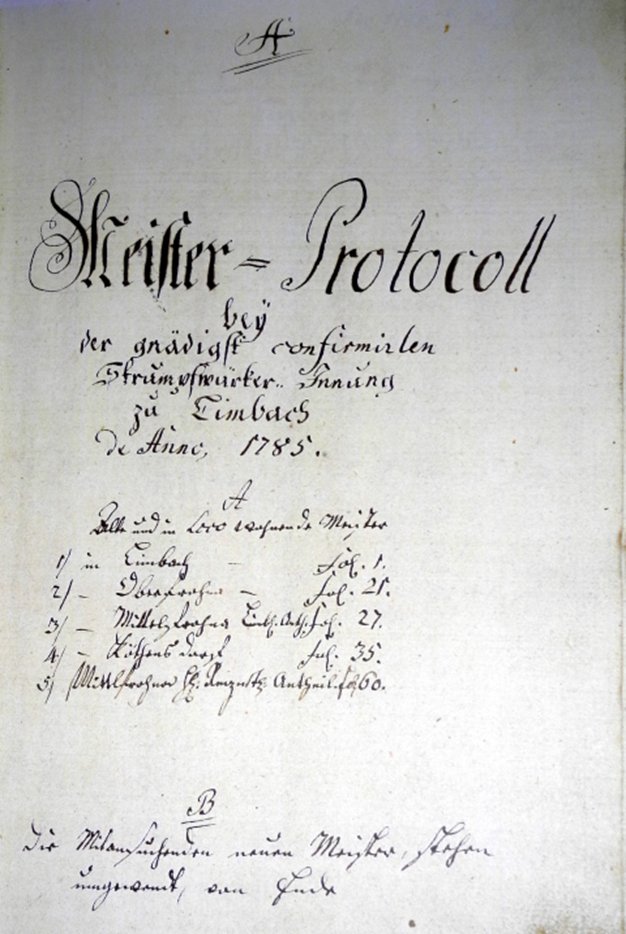 A
Meister = Protocoll
bey
der gnädigst confirmirten
Strumpfwürker.. Innung
zu Limbach
de Anno, 1785.
A
Alte und in Loco wohnende Meister
1) in Limbach - Fol. 1.
2) - Oberfrohna - Fol. 21.
3) - Mittelfrohna Limb. Anth. Fol. 27.
4) - Köthensdorf Fol. 35.
5) Mittelfrohna Antheil. Fol. 60.
B
Die neuen Meister, stehen
umgewendt, von Ende